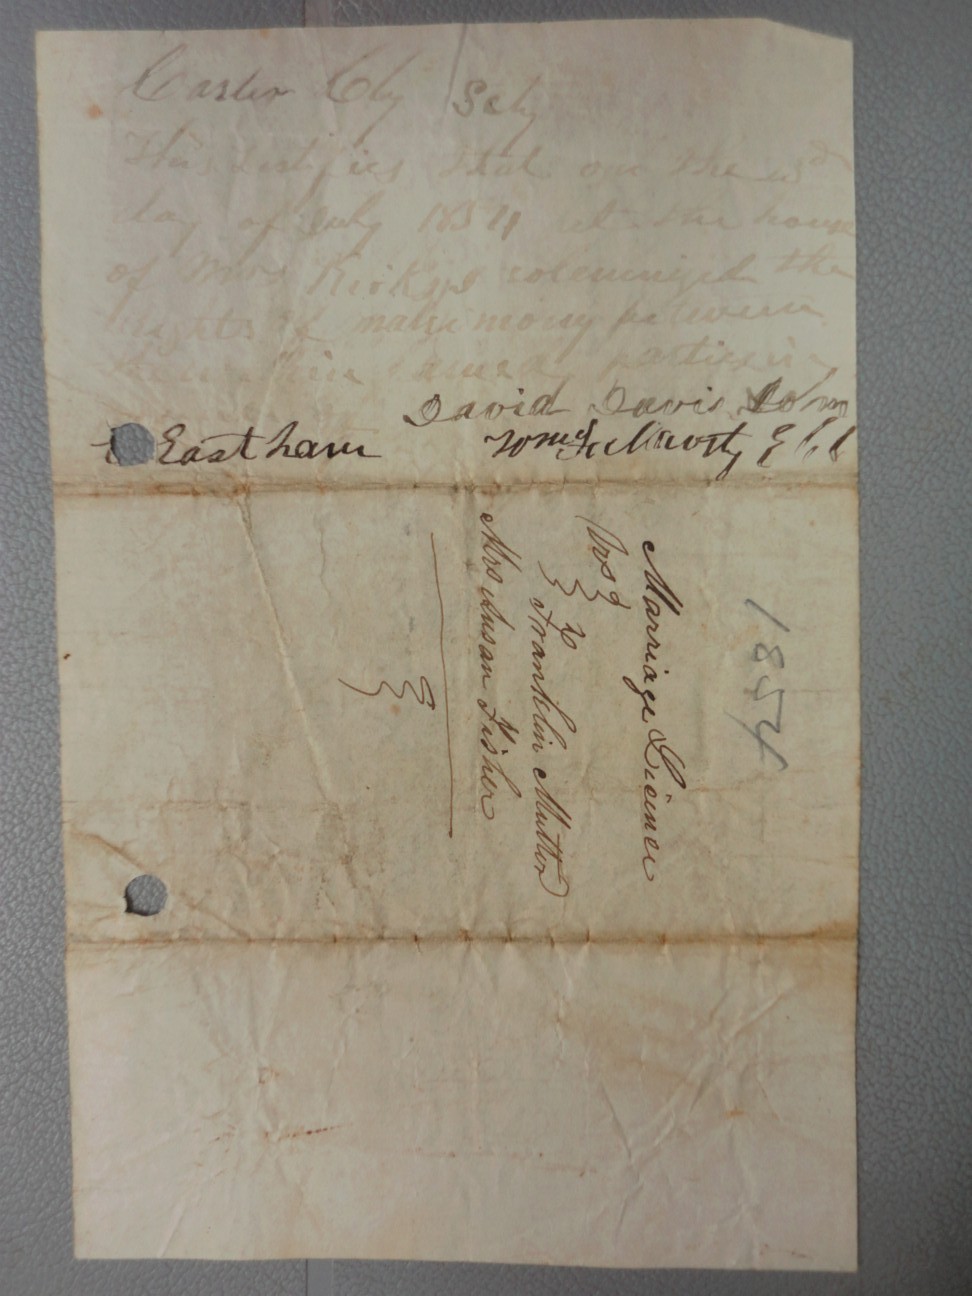 Carter Cty Sct
This certifies that on the
day of July 1854 at the house
of Mrs solemnized the
rights of matrimony between
the within named parties
David Davis
Eastham Wm
1854
Marriage Licince
Franklin Mutter
&
Mrs Susan Fisher